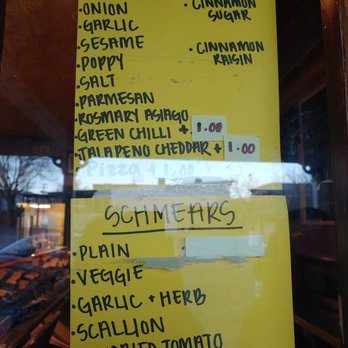 • ONION
• GARLIC
• SESAME
• POPPY
• SALT
• PARMESAN
• ROSMARY ASIAGO
• GREEN CHILLI + 1.00
• JALAPENO CHEDDAR + 1.00
Pizza + 1.00
• CINNAMON
SUGAR
• CINNAMON
RAISIN
SCHMEARS
• PLAIN
• VEGGIE
• GARLIC + HERB
• SCALLION
DRIED TOMATO